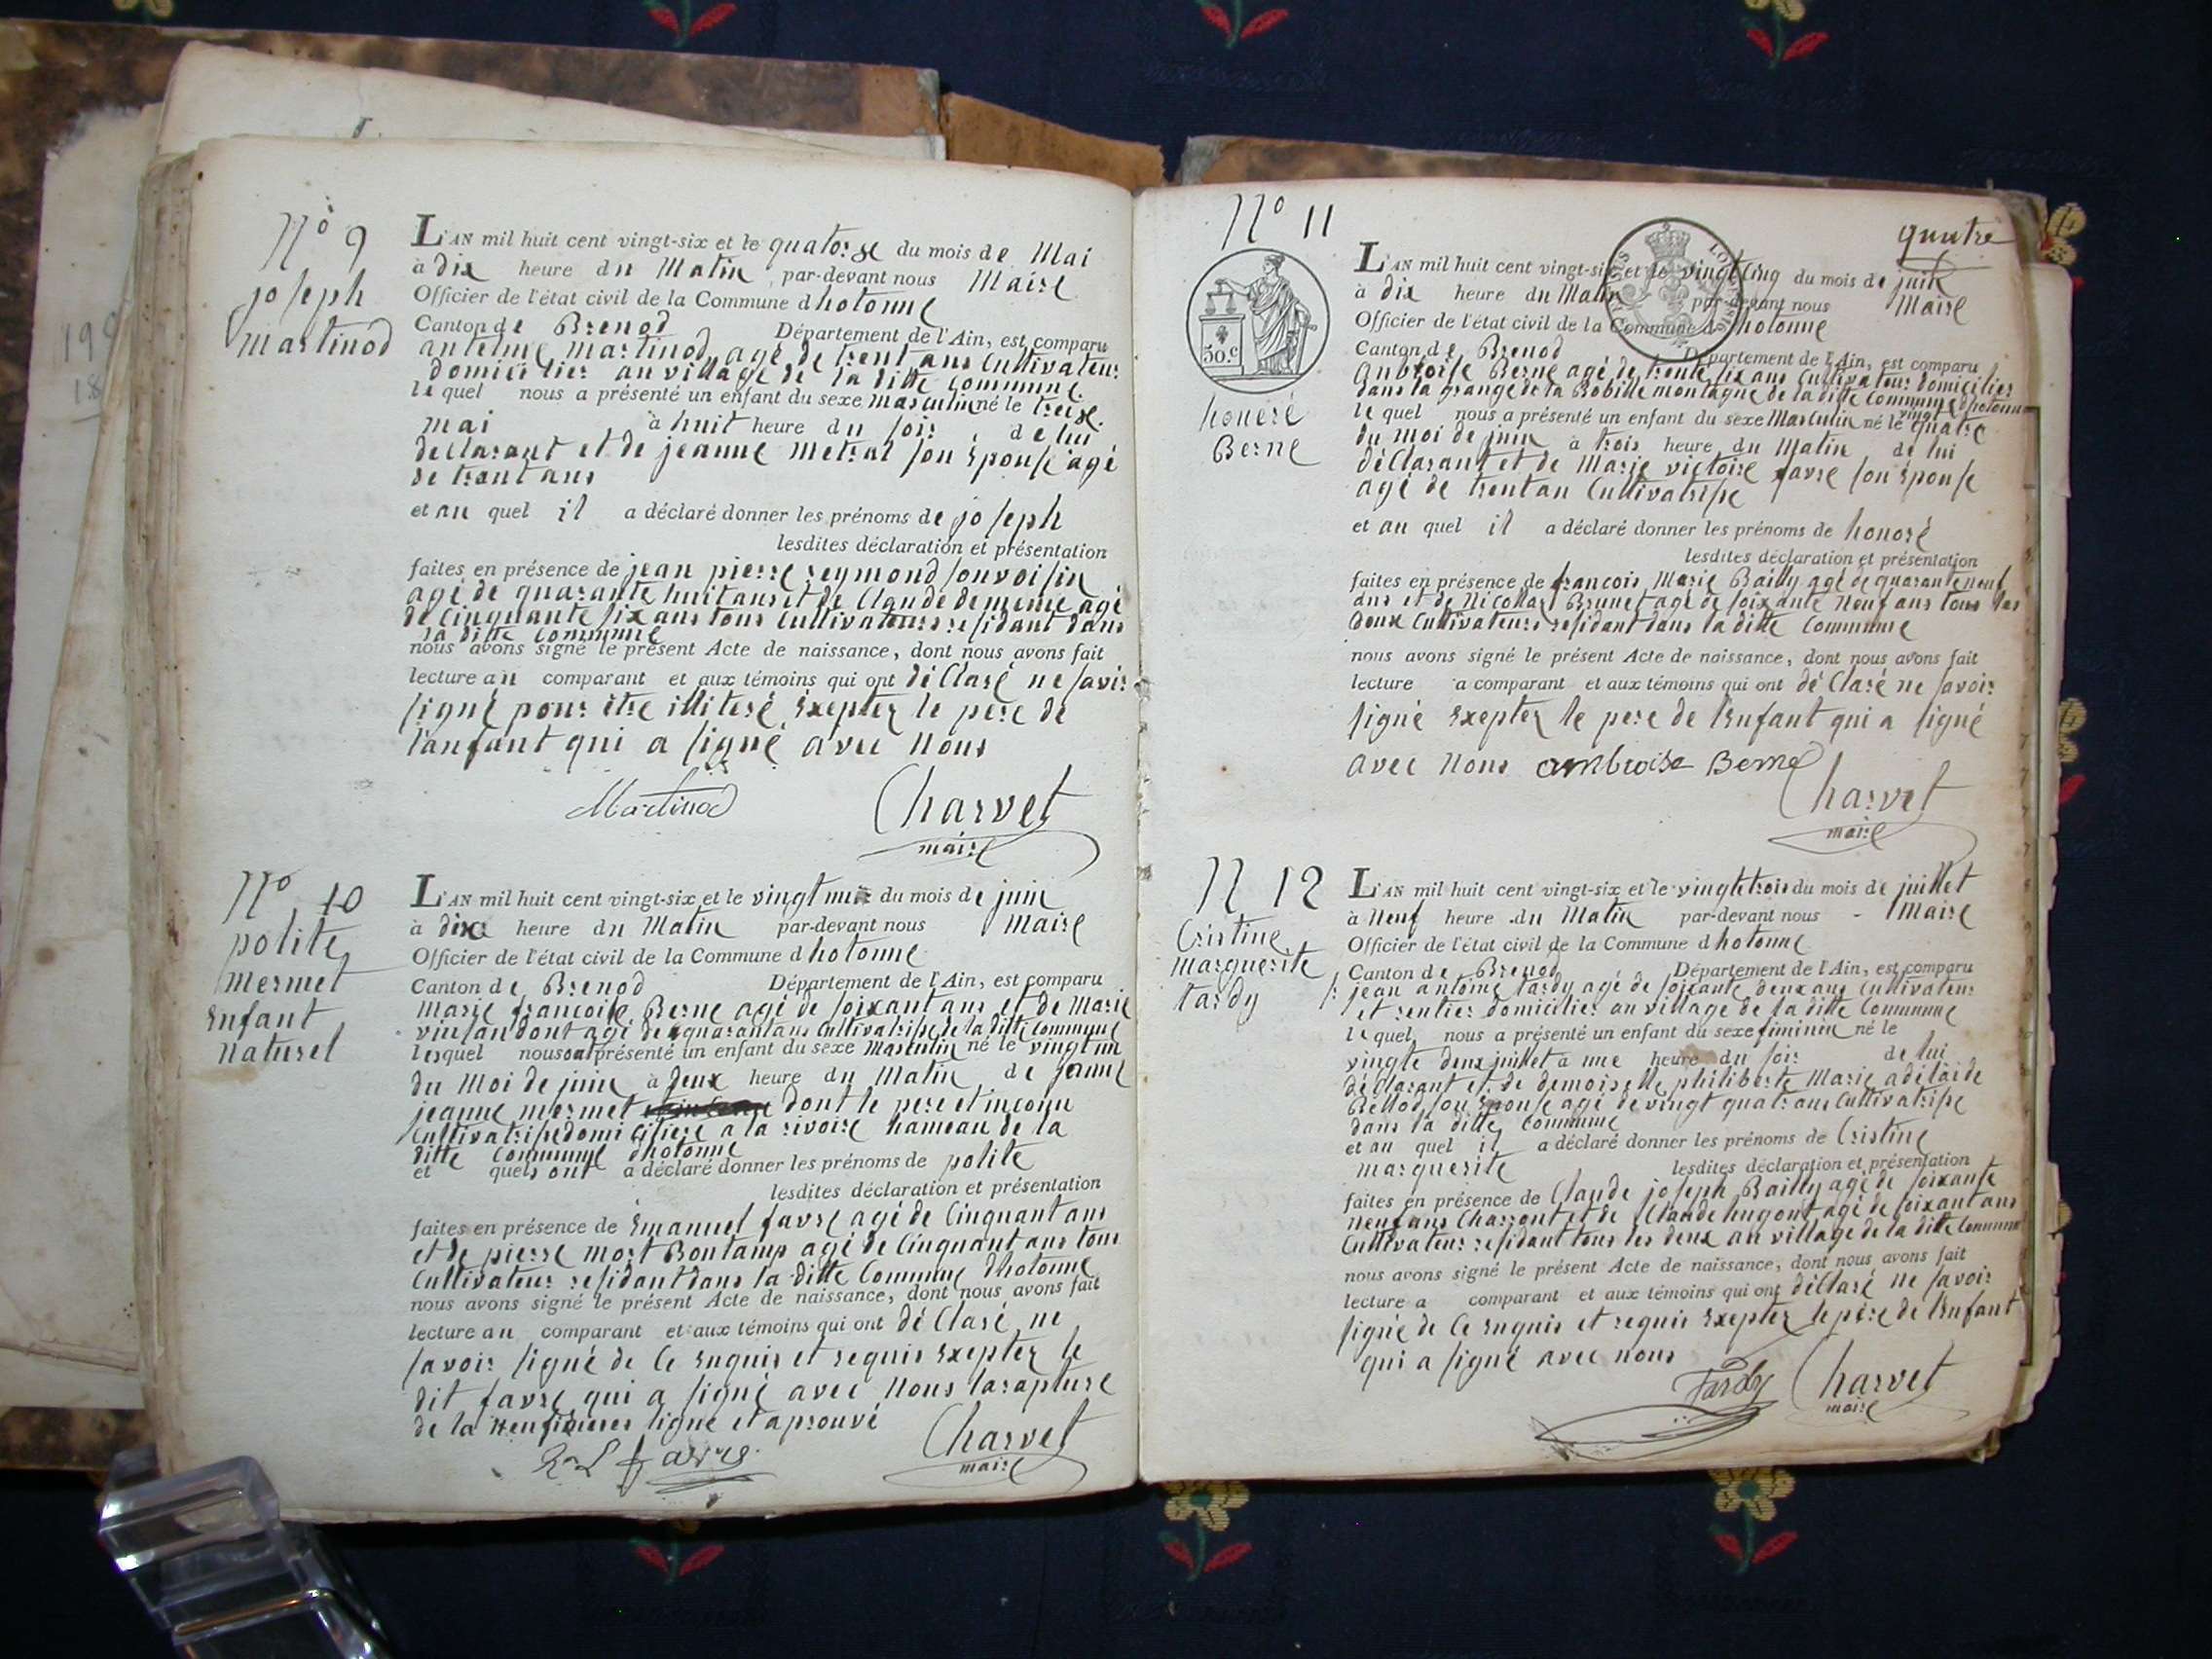 N° 9
joseph
martinod
L'AN mil huit cent vingt-six et le quatorse du mois de Mai
à dix heure du Matin par-devant nous Maire
Officier de l'état civil de la Commune dhotonne
Canton de Brenod Département de l'Ain, est comparu
antelme martinod agé de trent ans Cultivateur
domicilier au village de la ditte commune
lequel nous a présenté un enfant du sexe masculin né le treise
mai à huit heure du soir de lui
declarant et de jeanne metral son Épouse agé
de trant ans
et au quel il a déclaré donner les prénoms de joseph
lesdites déclaration et présentation
faites en présence de jean pierre reymond son voisin
agé de quarante huit ans et de Claude de meme agé
de Cinquante six ans tous Cultivateurs residant dans
la ditte commune
nous avons signé le présent Acte de naissance, dont nous avons fait
lecture au comparant et aux témoins qui ont déClaré ne savoir
signé pour être illiteré Exepter le pere de
lanfant qui a signé avec nous
Martinod Charvet
maire
N° 10
polite
mermet
Enfant
naturel
L'AN mil huit cent vingt-six et le vingt du mois de juin
à dix heure du Matin par-devant nous Maire
Officier de l'état civil de la Commune dhotonne
Canton de Brenod Département de l'Ain, est comparu
Marie francoise Berne agé de soixant ans et de Marie
agé de quarant ans Cultivatrise de la ditte Commune
lesquel nous ont présenté un enfant du sexe Masculin né le vingt un
du Moi de juin à deux heure du Matin de
jeanne mermet dont le pere et inconu
Cultivatrise domiciliere a la rivoire hameau de la
ditte Commune dhotonne
et quels ont a déclaré donner les prénoms de polite
lesdites déclaration et présentation
faites en présence de Emanuel favre agé de Cinquant ans
et de pierre mort Bontamp agé de Cinquant ans tous
Cultivateur residant dans la ditte Commune dhotonne
nous avons signé le présent Acte de naissance, dont nous avons fait
lecture au comparant et aux témoins qui ont déClaré ne
savoir signé de Ce Enquis et requis Exepter le
dit favre qui a signé avec nous larapture
de la ligne et aprouvé
favre Charvet
maire
N° 11
quatre
30.c
honoré
Berne
L'AN mil huit cent vingt-six et le vingt Cinq du mois de juin
à dix heure du Matin par-devant nous Maire
Officier de l'état civil de la Commune dhotonne
Canton de Brenod Département de l'Ain, est comparu
anbroise Berne agé de trente six ans Cultivateur domicilier
dans la grange de la Bobille montagne de la ditte Commune dhotonne
lequel nous a présenté un enfant du sexe Masculin né le vingt quatre
du moi de juin à trois heure du Matin de lui
déClarant et de Marie victoire favre son Épouse
agé de trent an Cultivatrise
et au quel il a déclaré donner les prénoms de honoré
lesdites déclaration et présentation
faites en présence de francois Marie Bailly agé de quarante neuf
ans et de Nicollas Brunet agé de soixante Neuf ans tous les
deux Cultivateurs residant dans la ditte Commune
nous avons signé le présent Acte de naissance, dont nous avons fait
lecture a comparant et aux témoins qui ont déClaré ne savoir
signé Exepter le pere de lEnfant qui a signé
avec nous ambroise Berne
Charvet
maire
N 12
Cristine
Marguerite
tardy
L'AN mil huit cent vingt-six et le vingt trois du mois de juillet
à Neuf heure du Matin par-devant nous Maire
Officier de l'état civil de la Commune dhotonne
Canton de Brenod Département de l'Ain, est comparu
jean antoine tardy agé de soixante deux ans Cultivateur
et rentier domicilier au village de la ditte Commune
lequel nous a présenté un enfant du sexe fiminin né le
vingte deux juillet à une heure du soir de lui
déClarant et de demoiselle philiberte Marie adélaide
Bellod son Épouse agé de vingt quatr ans Cultivatrise
dans la ditte Commune
et au quel il a déclaré donner les prénoms de Cristine
marguerite lesdites déclaration et présentation
faites en présence de Claude joseph Bailly agé de soixante
neuf ans Charront et de Claude hugont agé de soixant ans
Cultivateur residant tous les deux au village de la ditte Commune
nous avons signé le présent Acte de naissance, dont nous avons fait
lecture a comparant et aux témoins qui ont déClaré ne savoir
signé de Ce Enquis et requis Exepter le père de lEnfant
qui a signé avec nous
Tardy Charvet
maire